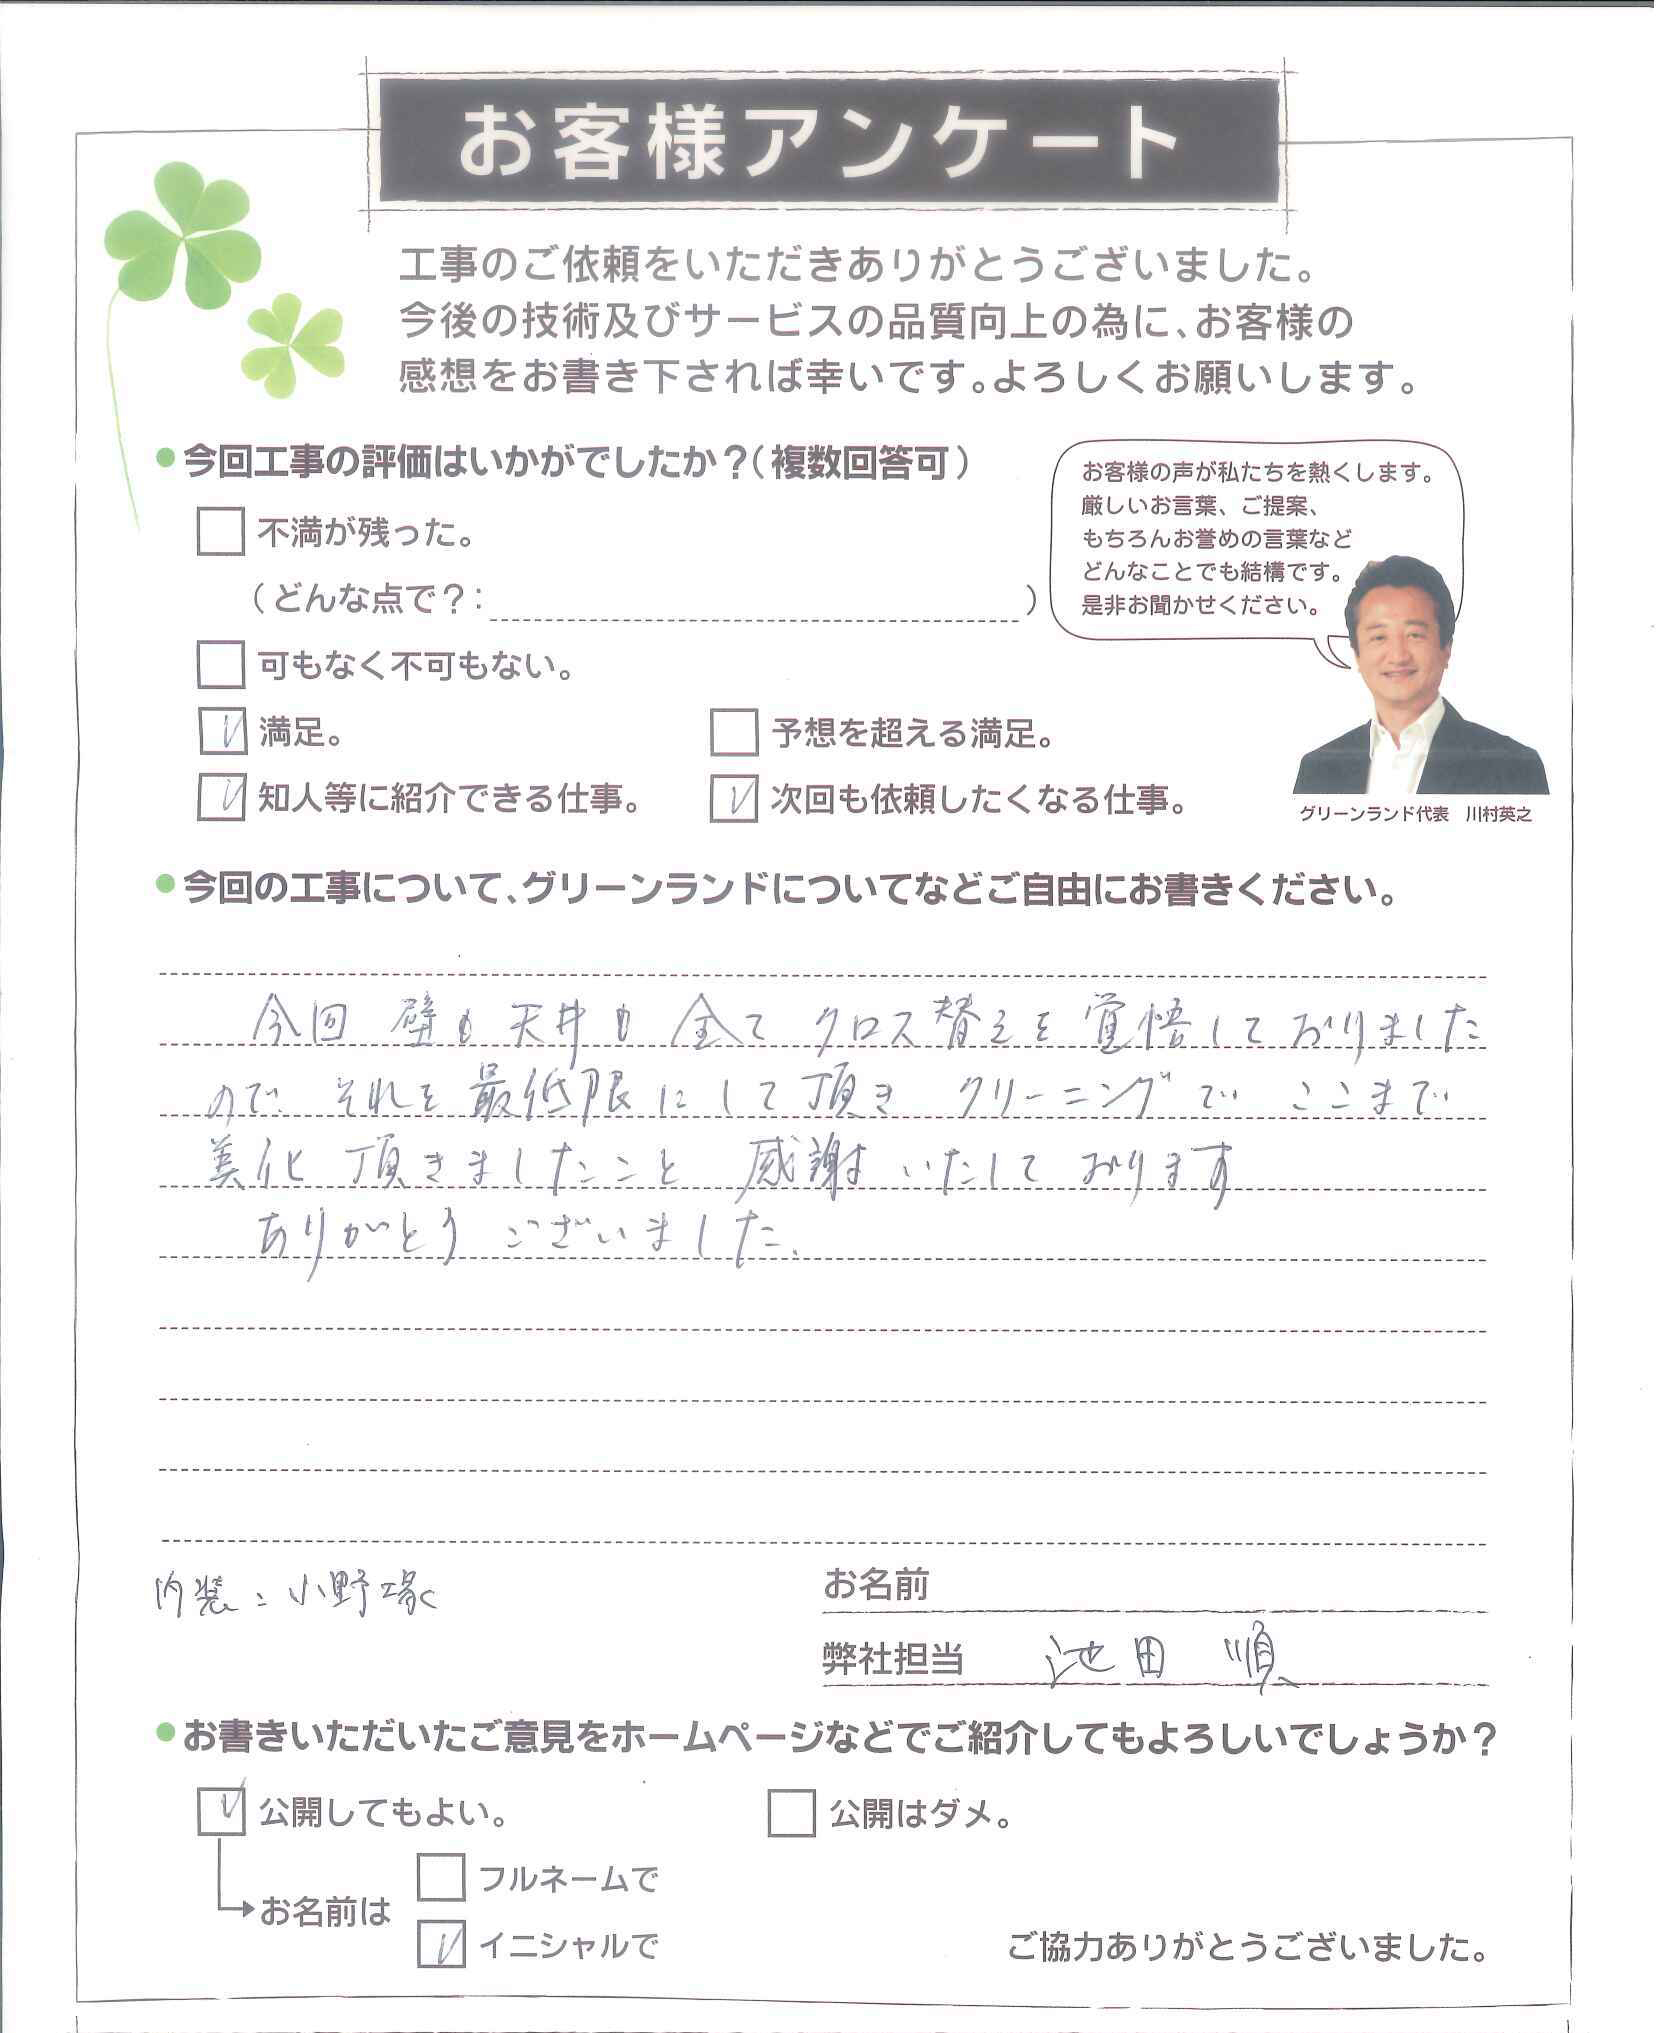 お客様アンケート
工事のご依頼をいただきありがとうございました。
今後の技術及びサービスの品質向上の為に、お客様の
感想をお書き下されば幸いです。よろしくお願いします。
●今回工事の評価はいかがでしたか？（複数回答可）
不満が残った。
（どんな点で？：　　　）
可もなく不可もない。
満足。
予想を超える満足。
知人等に紹介できる仕事。
次回も依頼したくなる仕事。
お客様の声が私たちを熱くします。
厳しいお言葉、ご提案、
もちろんお誉めの言葉など
どんなことでも結構です。
是非お聞かせください。
グリーンランド代表　川村英之
●今回の工事について、グリーンランドについてなどご自由にお書きください。
今回 壁も天井も 全て クロス替えを覚悟しておりました
ので それを最低限にして頂き クリーニングで ここまで
美化 頂きましたこと 感謝いたしております
ありがとう ございました.
内装：小野塚
お名前
弊社担当　池田 順
●お書きいただいたご意見をホームページなどでご紹介してもよろしいでしょうか？
公開してもよい。
公開はダメ。
お名前は
フルネームで
イニシャルで
ご協力ありがとうございました。